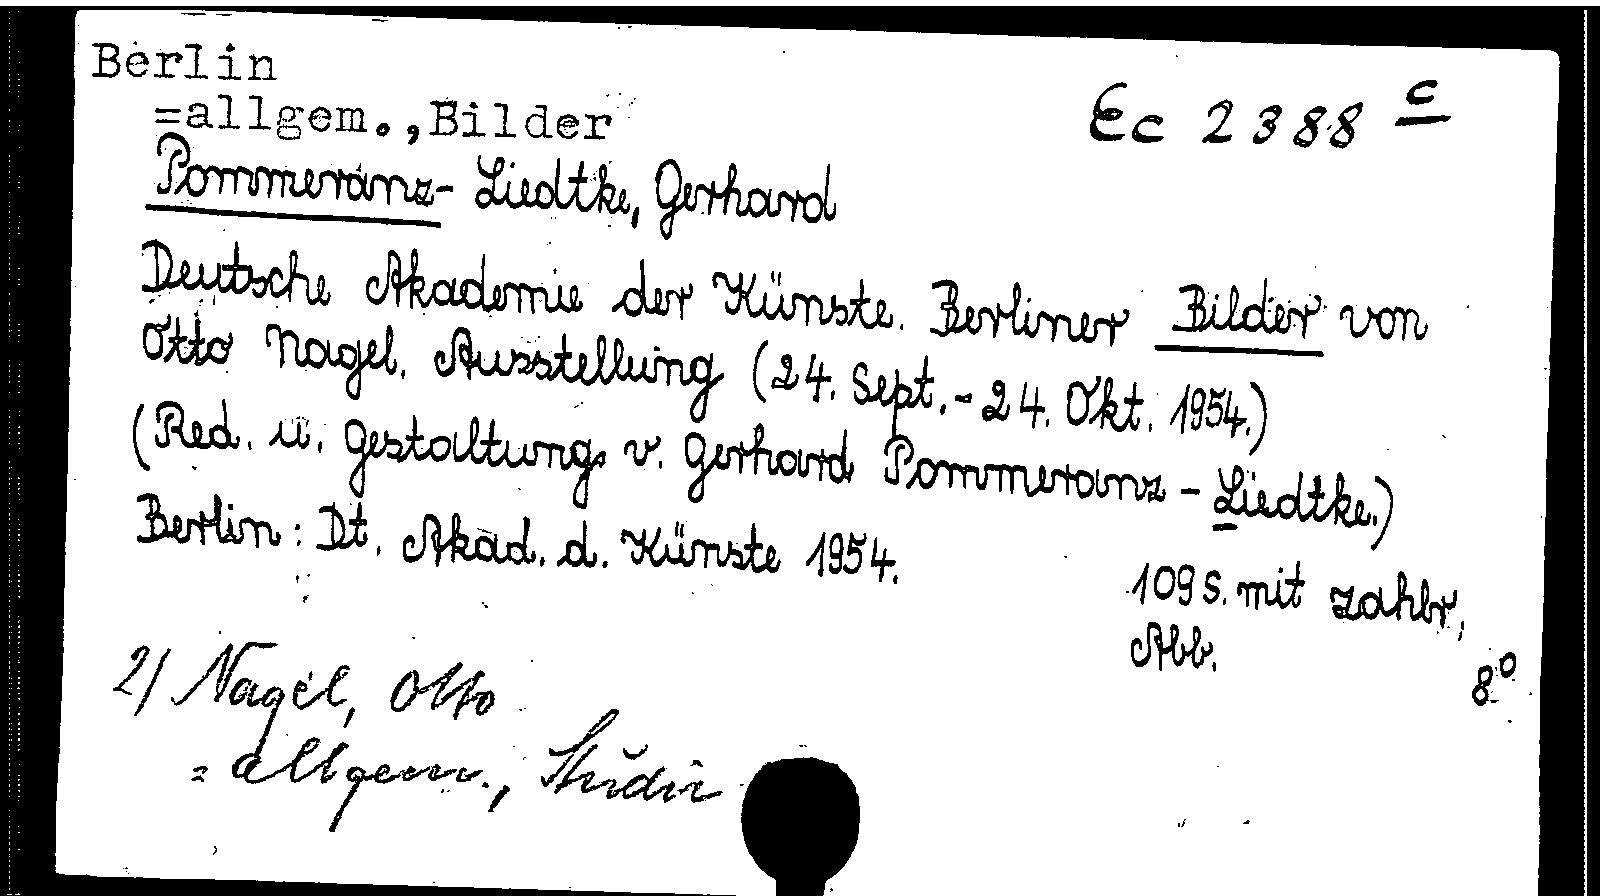 Berlin
=allgem.,Bilder
Ec 2388 c
Pommeranz-Liedtke, Gerhard
Deutsche Akademie der Künste. Berliner Bilder von
Otto Nagel. Ausstellung (24. Sept.-24. Okt. 1954.)
(Red. u. Gestaltung v. Gerhard Pommeranz-Liedtke.)
Berlin: Dt. Akad. d. Künste 1954.
109 S. mit zahlr.
Abb.
8°
2) Nagel, Otto
= allgem., Studie